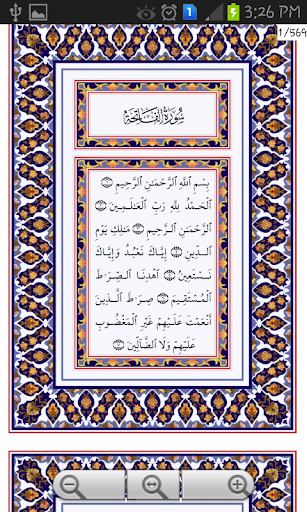 3:26 PM
1/569
سُورَةُ الفَاتِحَةِ
بِسْمِ ٱللَّهِ ٱلرَّحْمَٰنِ ٱلرَّحِيمِ ۝١
ٱلْحَمْدُ لِلَّهِ رَبِّ ٱلْعَٰلَمِينَ ۝٢
ٱلرَّحْمَٰنِ ٱلرَّحِيمِ ۝٣ مَٰلِكِ يَوْمِ
ٱلدِّينِ ۝٤ إِيَّاكَ نَعْبُدُ وَإِيَّاكَ
نَسْتَعِينُ ۝٥ ٱهْدِنَا ٱلصِّرَٰطَ
ٱلْمُسْتَقِيمَ ۝٦ صِرَٰطَ ٱلَّذِينَ
أَنْعَمْتَ عَلَيْهِمْ غَيْرِ ٱلْمَغْضُوبِ
عَلَيْهِمْ وَلَا ٱلضَّآلِّينَ ۝٧